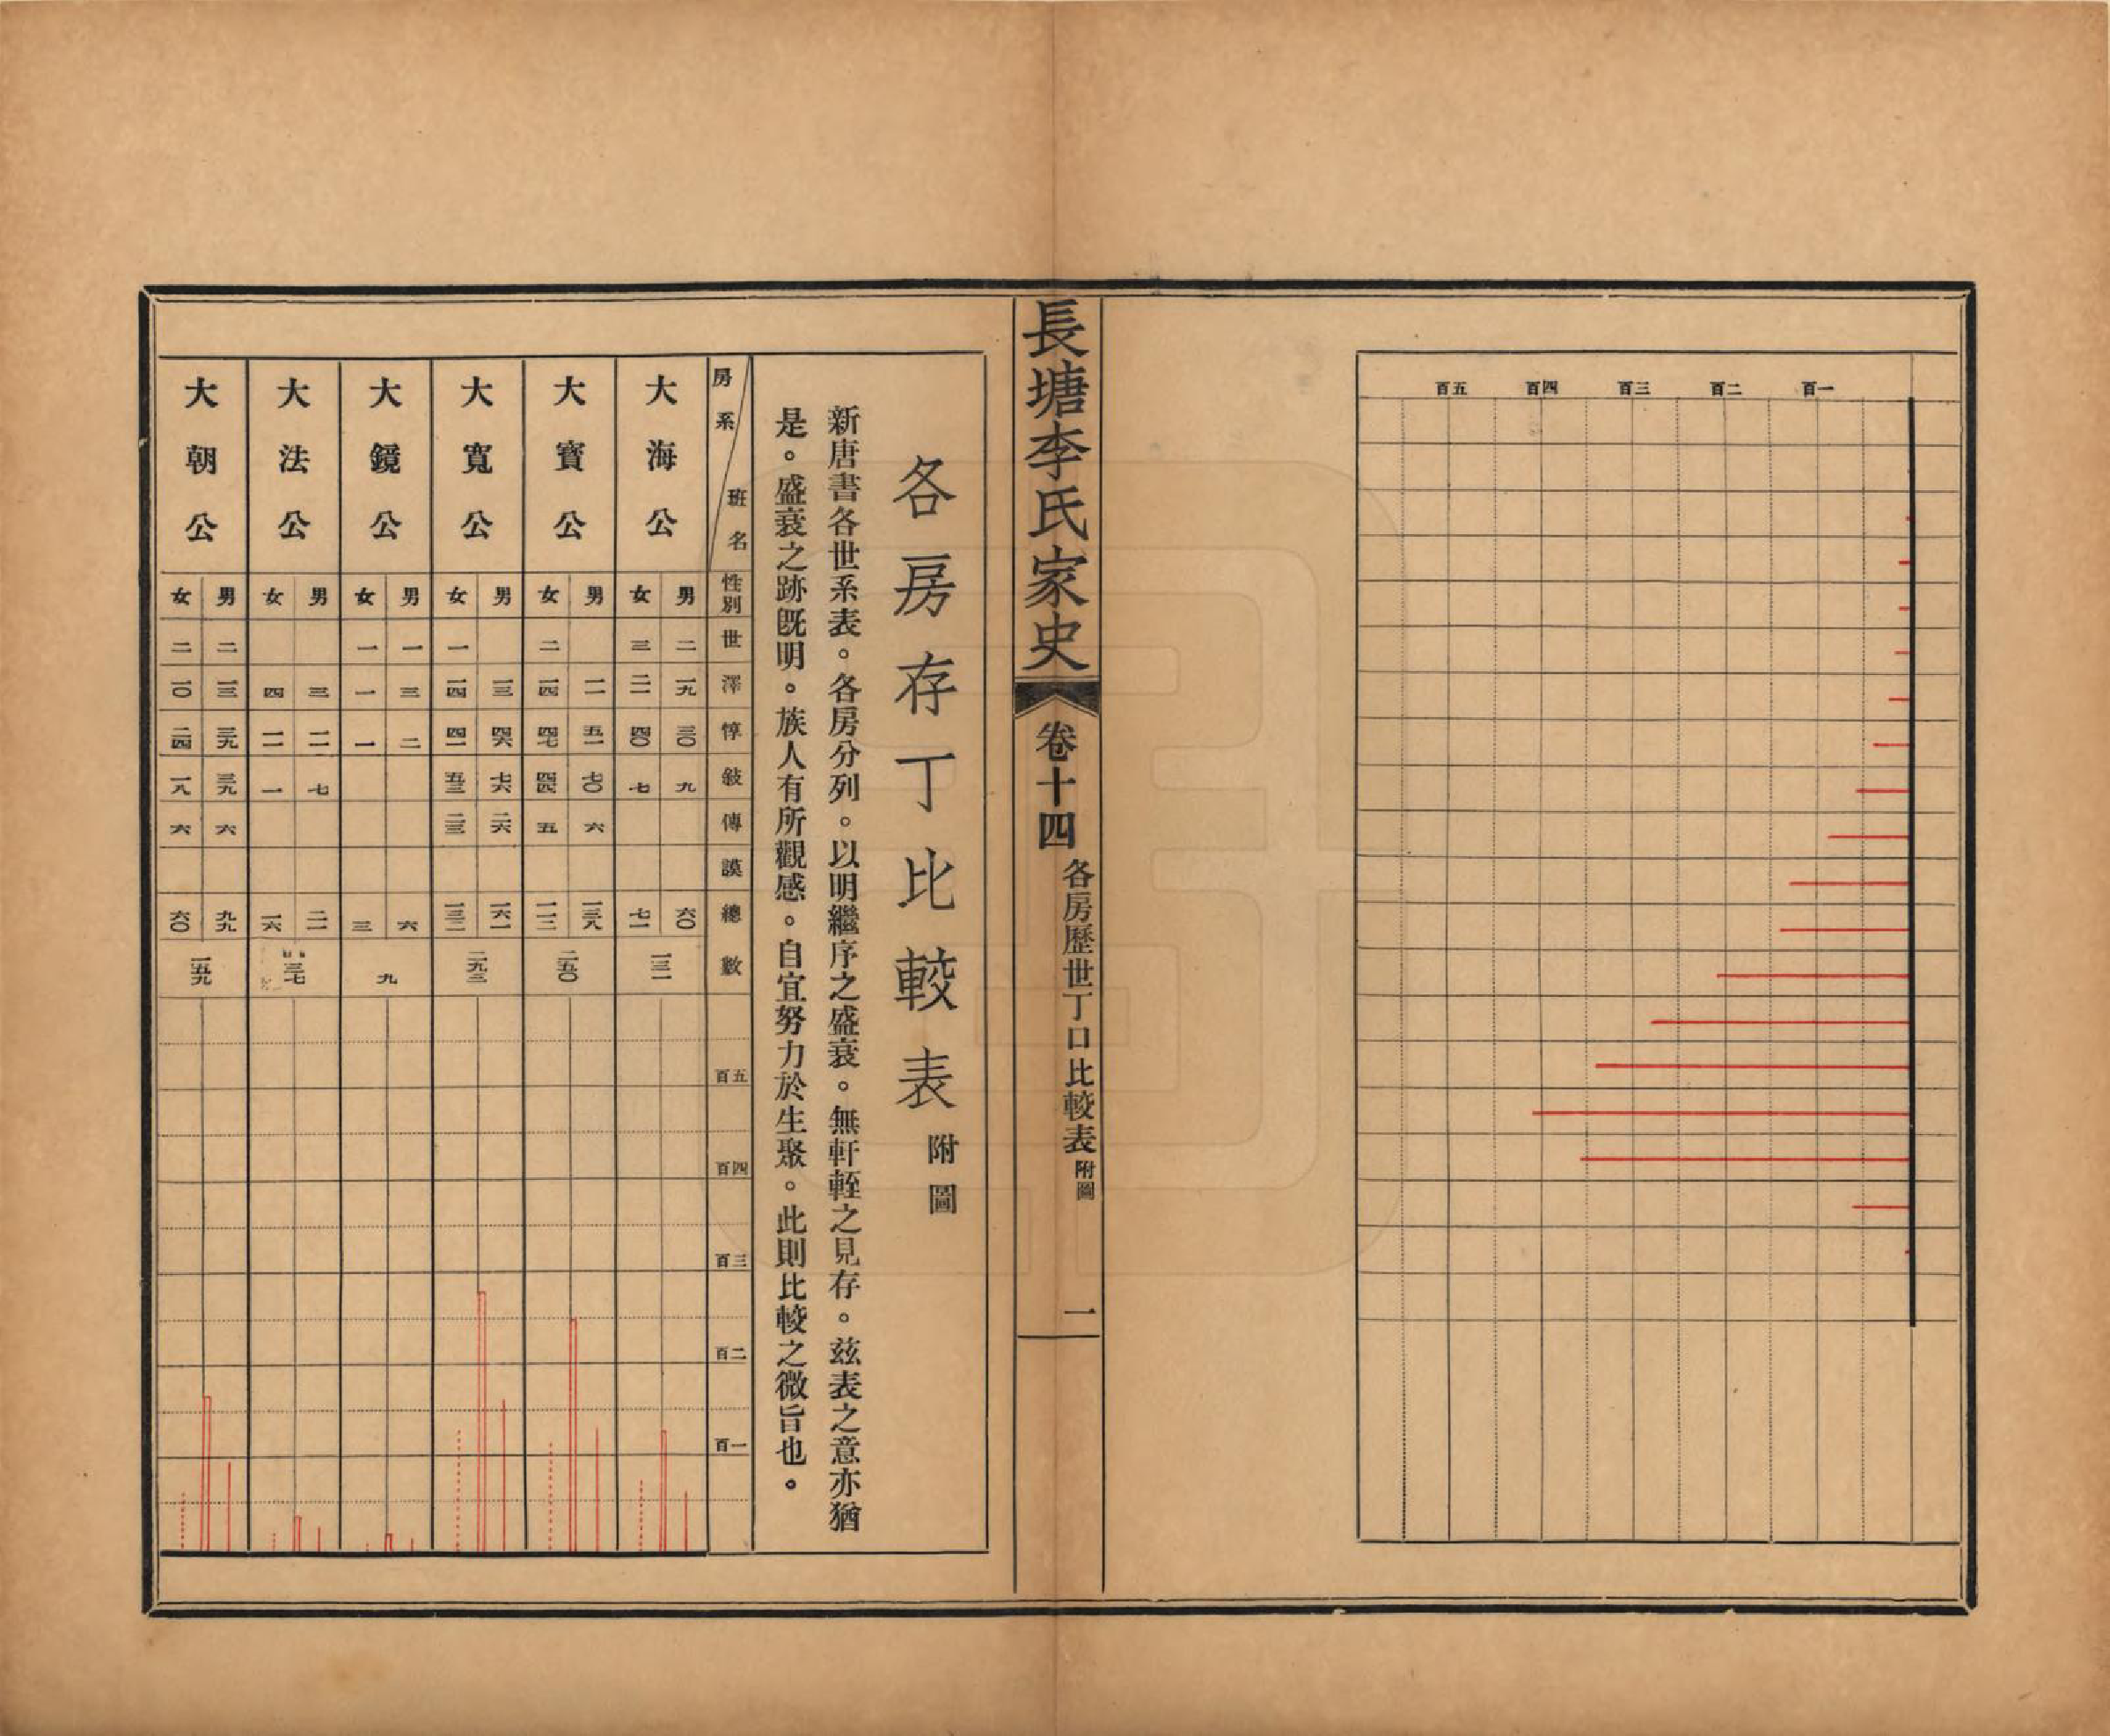 一百
二百
三百
四百
五百
長塘李氏家史
卷十四
各房歷世丁口比較表附圖
一
各房存丁比較表附圖
新唐書各世系表。各房分列。以明繼序之盛衰。無軒輊之見存。茲表之意亦猶
是。盛衰之跡既明。族人有所觀感。自宜努力於生聚。此則比較之微旨也。
房系 班名 性別 世 澤 惇 敍 傳 謨 總數 五百 四百 三百 二百 一百
大海公
男 二 一九 三〇 九 六〇
女 三 二一 四〇 七 七一
一三一
大寶公
男 一一 五一 七〇 六 一三八
女 二 一四 四七 四四 五 一一二
二五〇
大寬公
男 一三 四六 七六 二六 一六一
女 一 一四 四一 五三 二三 一三二
二九三
大鏡公
男 一 三 二 六
女 一 一 一 三
九
大法公
男 三 一一 七 二一
女 四 一一 一 一六
三七
大朝公
男 二 一三 三九 三九 六 九九
女 二 一〇 二四 一八 六 六〇
一五九